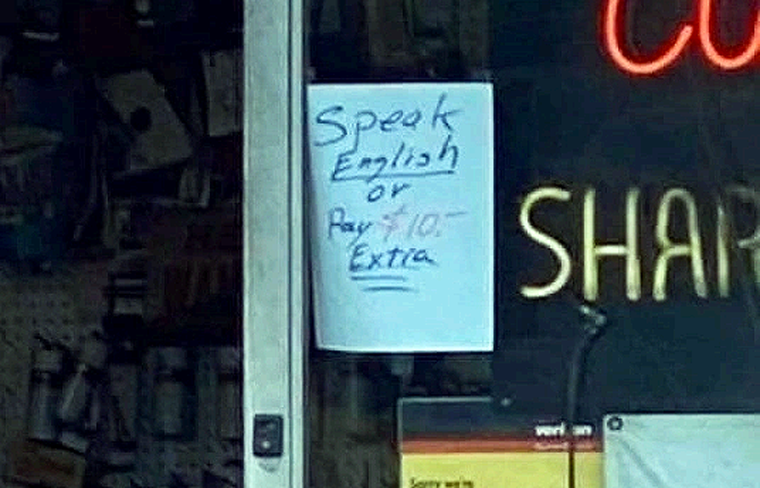 Speak
English
or
Pay $10.-
Extra
CU
SHAR
verizon
Sorry we're